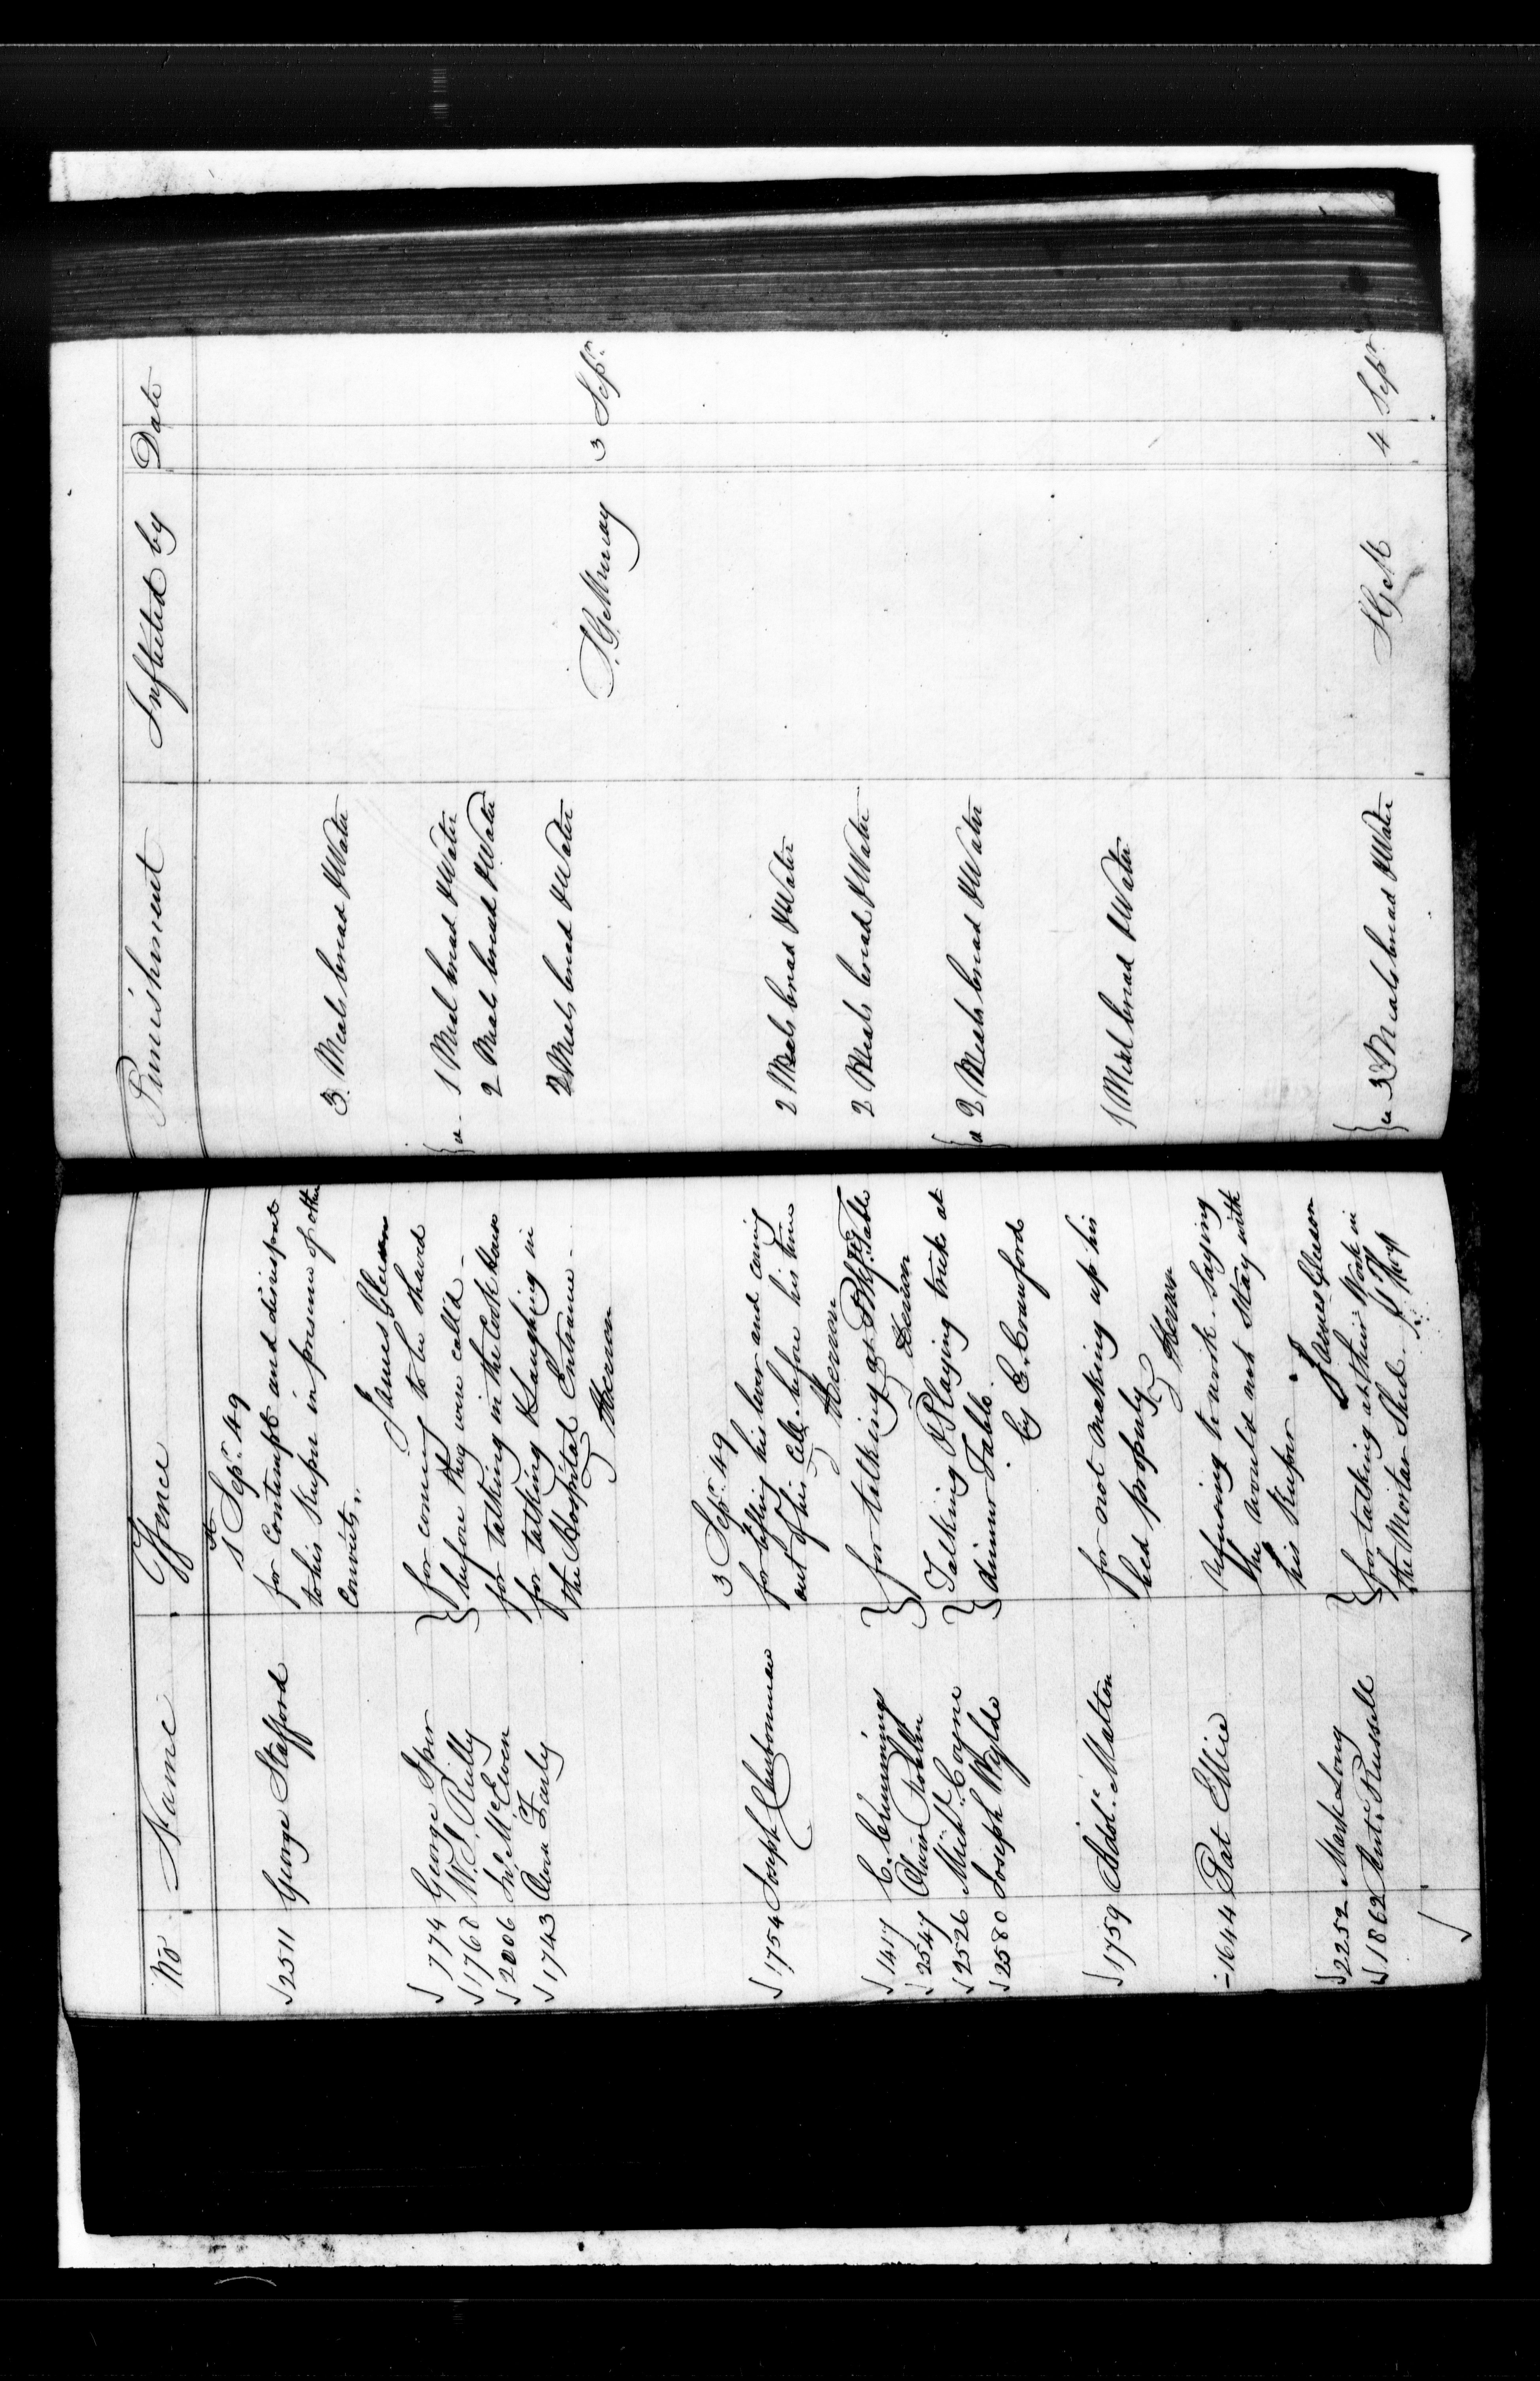 No Name Offence Punishment Inflicted by Date
1st Sepr. 49
2511 George Stafford for Contempt and disrespect 3 Meals bread & Water
to his Keeper in presence of other
Convicts.
James Gleeson
774 George Iser } for coming to be shaved } a 1 Meal bread & Water
1768 W. S. Reilly } before they were call'd
2006 Jno. McEwen for talking in the Cook House 2 Meals bread & Water
1743 Owen Farly for talking & Laughing in 2 Meals bread & Water
the Hospital Entrance
Keenan
S. Ge Murray 3 Sepr.
3 Sepr. 49
1754 Joseph for lifting his lever and coming 2 Meals bread & Water
out of his Cell before his time
1417 C. Cummings } for talking at Bkfst. Table 2 Meals bread & Water
2547 }
2526 Michl. Coyne } Talking & Playing tricks at } a 2 Meals bread & Water
2580 Joseph Wylde } dinner Table.
by C. Crawford
1759 Malton for not making up his 1 Meal bread & Water
bed properly
1644 Pat Ellie refusing to work saying
he would not Stay with
his Keeper
James Gleeson
2252 Mark Long } for talking at their Work in } a 3 Meals bread & Water SGeM 4 Sepr.
1862 Ante. Russell } the Mortar Shed